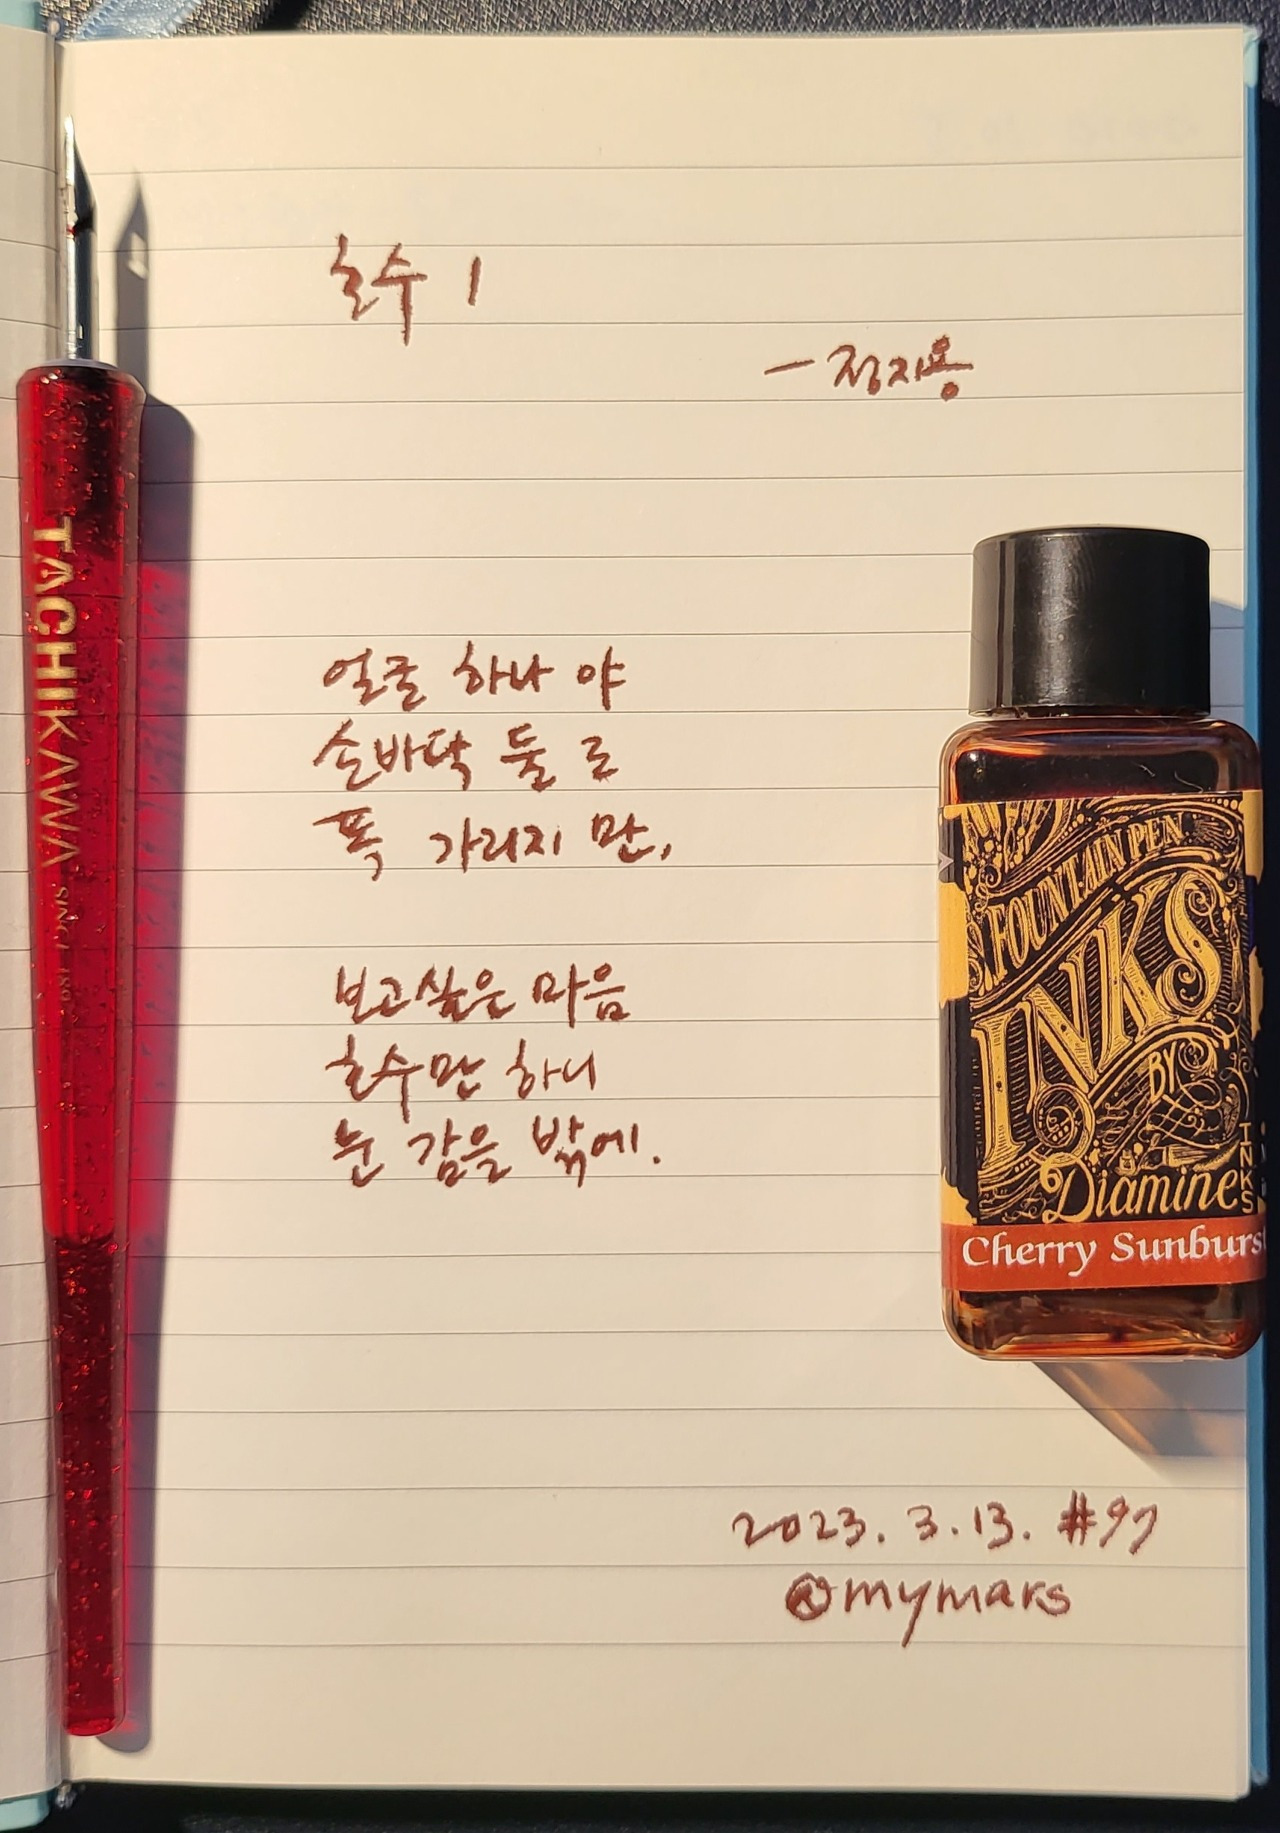 호수 1
- 정지용
얼굴 하나 야
손바닥 둘 로
폭 가리지 만,
보고싶은 마음
호수만 하니
눈 감을 밖에.
2023. 3. 13. #97
@mymars
TACHIKAWA SINCE
FOUNTAIN PEN
INKS
BY
Diamine
INKS
Cherry Sunburst